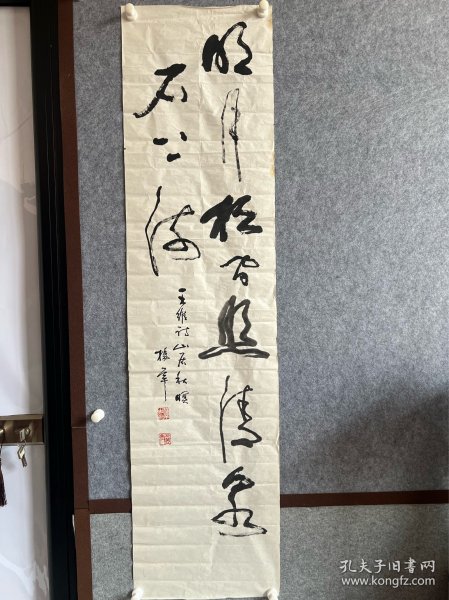 明月松间照清泉
石上流
王维诗山居秋暝
孔夫子旧书网
www.kongfz.com